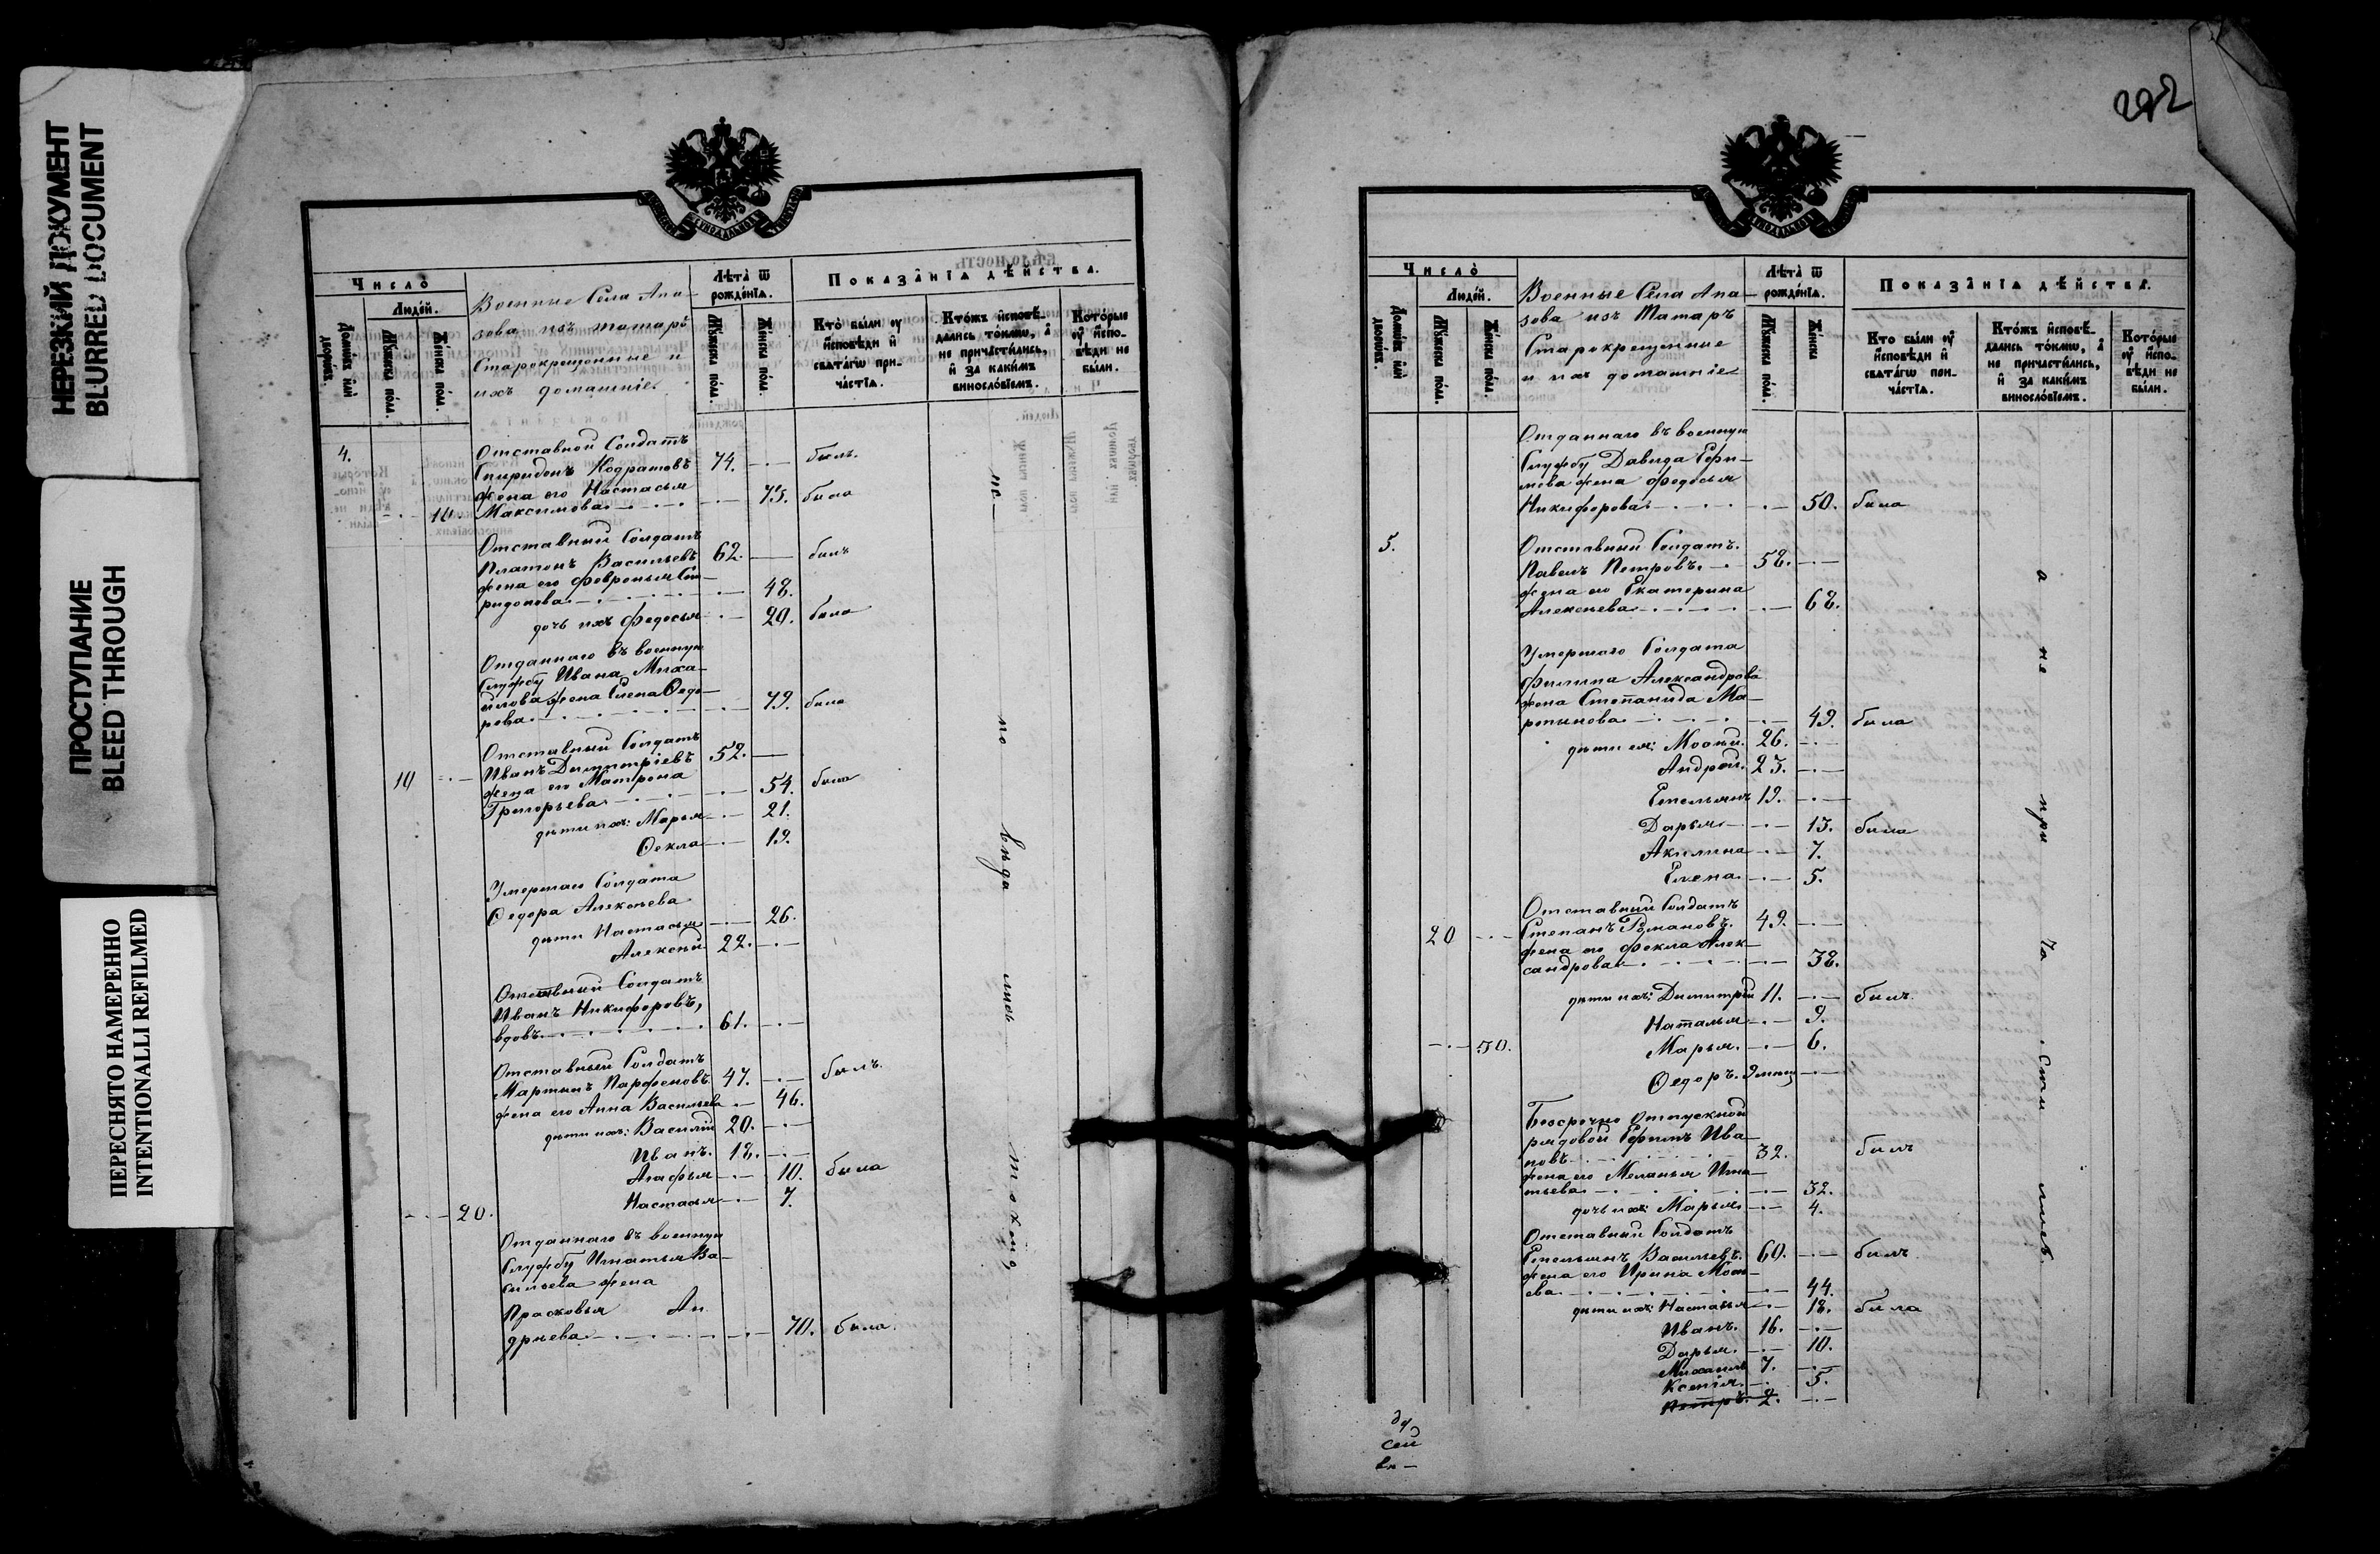 НЕРЕЗКИЙ ДОКУМЕНТ
BLURRED DOCUMENT
ПРОСТУПАНИЕ
BLEED THROUGH
ПЕРЕСНЯТО НАМЕРЕННО
INTENTIONALLI REFILMED
Число̀
Людей.
Домѡвъ или дворѡвъ.
Мꙋжеска полꙋ.
Женска полꙋ.
Военные Села Апа-
зова изъ татаръ
Старокрещенные и
ихъ домашніе
Лѣта ѿ рожденїѧ.
Мꙋжеска полꙋ.
Женска полꙋ.
Показанїѧ дѣйства.
Кто были оу исповѣди и свѧтагѡ причастїѧ.
Ктожъ исповѣдались токмѡ, а не причастились, и за какимъ винословїемъ.
Которые оу исповѣди не были.
4.
Отставной Солдатъ
Спиридонъ Кодратовъ 74. былъ.
жена его Настасья
10. Максимова 75. была
Отставный Солдатъ
Платонъ Васильевъ 62. былъ
жена его Февронья Спи-
ридонова 48.
дочь ихъ Федосья 20. была
Отданнаго въ военную
Службу Ивана Миха-
йлова жена Елена Ѳедо-
рова 79. была
Отставный Солдатъ
10 Иванъ Димитріевъ 52.
жена его Матрона
Григорьева 54. была
дѣти ихъ: Марья 21.
Ѳекла 19.
Умершаго Солдата
Ѳедора Алексѣева
дѣти Настасья 26.
Алексѣй 22.
Отставный Солдатъ
Иванъ Никифоровъ,
вдовъ 61.
Отставный Солдатъ
Мартинъ Парфеновъ 47. былъ.
жена его Анна Васильева 46.
дѣти ихъ: Василій 20.
Иванъ. 18.
Агафья 10. была
20. Настасья 7.
Отданнаго въ военную
Службу Игнатья Ва-
сильева жена
Прасковья Ан
дрѣева 70. была.
292
Число̀
Людей.
Домѡвъ или дворѡвъ.
Мꙋжеска полꙋ.
Женска полꙋ.
Военные Села Апа-
зова изъ Татаръ
Старокрещенные
и ихъ домашніе
Лѣта ѿ рожденїѧ.
Мꙋжеска полꙋ.
Женска
Показанїѧ дѣйства.
Кто были оу исповѣди и свѧтагѡ причастїѧ.
Ктожъ исповѣдались токмѡ, а не причастились, и за какимъ винословїемъ.
Которые оу исповѣди не были.
Отданнаго въ военную
Службу Давида Ефи-
мова жена Федосья
Никифорова 50. была
5. Отставный Солдатъ.
Павелъ Петровъ. 58.
жена его Екатерина
Алексѣева 68.
Умершаго Солдата
Филипа Александрова
жена Степанида Ма-
ртынова 49. была
дѣти ея: Мосѣй. 26.
Андрей. 23.
Емельянъ 19.
Дарья 13. была
Акилина 7.
Елена 5.
Отставный Солдатъ
20 Степанъ Романовъ. 49.
жена его Фекла Алек-
сандрова 38.
дѣти ихъ: Димитрій 11. былъ.
Наталья 9.
30. Марья. 6.
Ѳедоръ.
Безсрочно отпускной
рядовой Ефимъ Ива-
новъ 32. былъ
жена его Меланья Игна-
тьева 32.
дочь ихъ: Марья 4.
Отставный Солдатъ
Емельянъ Васильевъ. 60. былъ
жена его Ирина Мосѣ-
ева 44.
дѣти ихъ: Настасья 18. была
Иванъ. 16.
Дарья. 10.
Михаилъ 7.
Ксенія 5.
Петръ. 2.